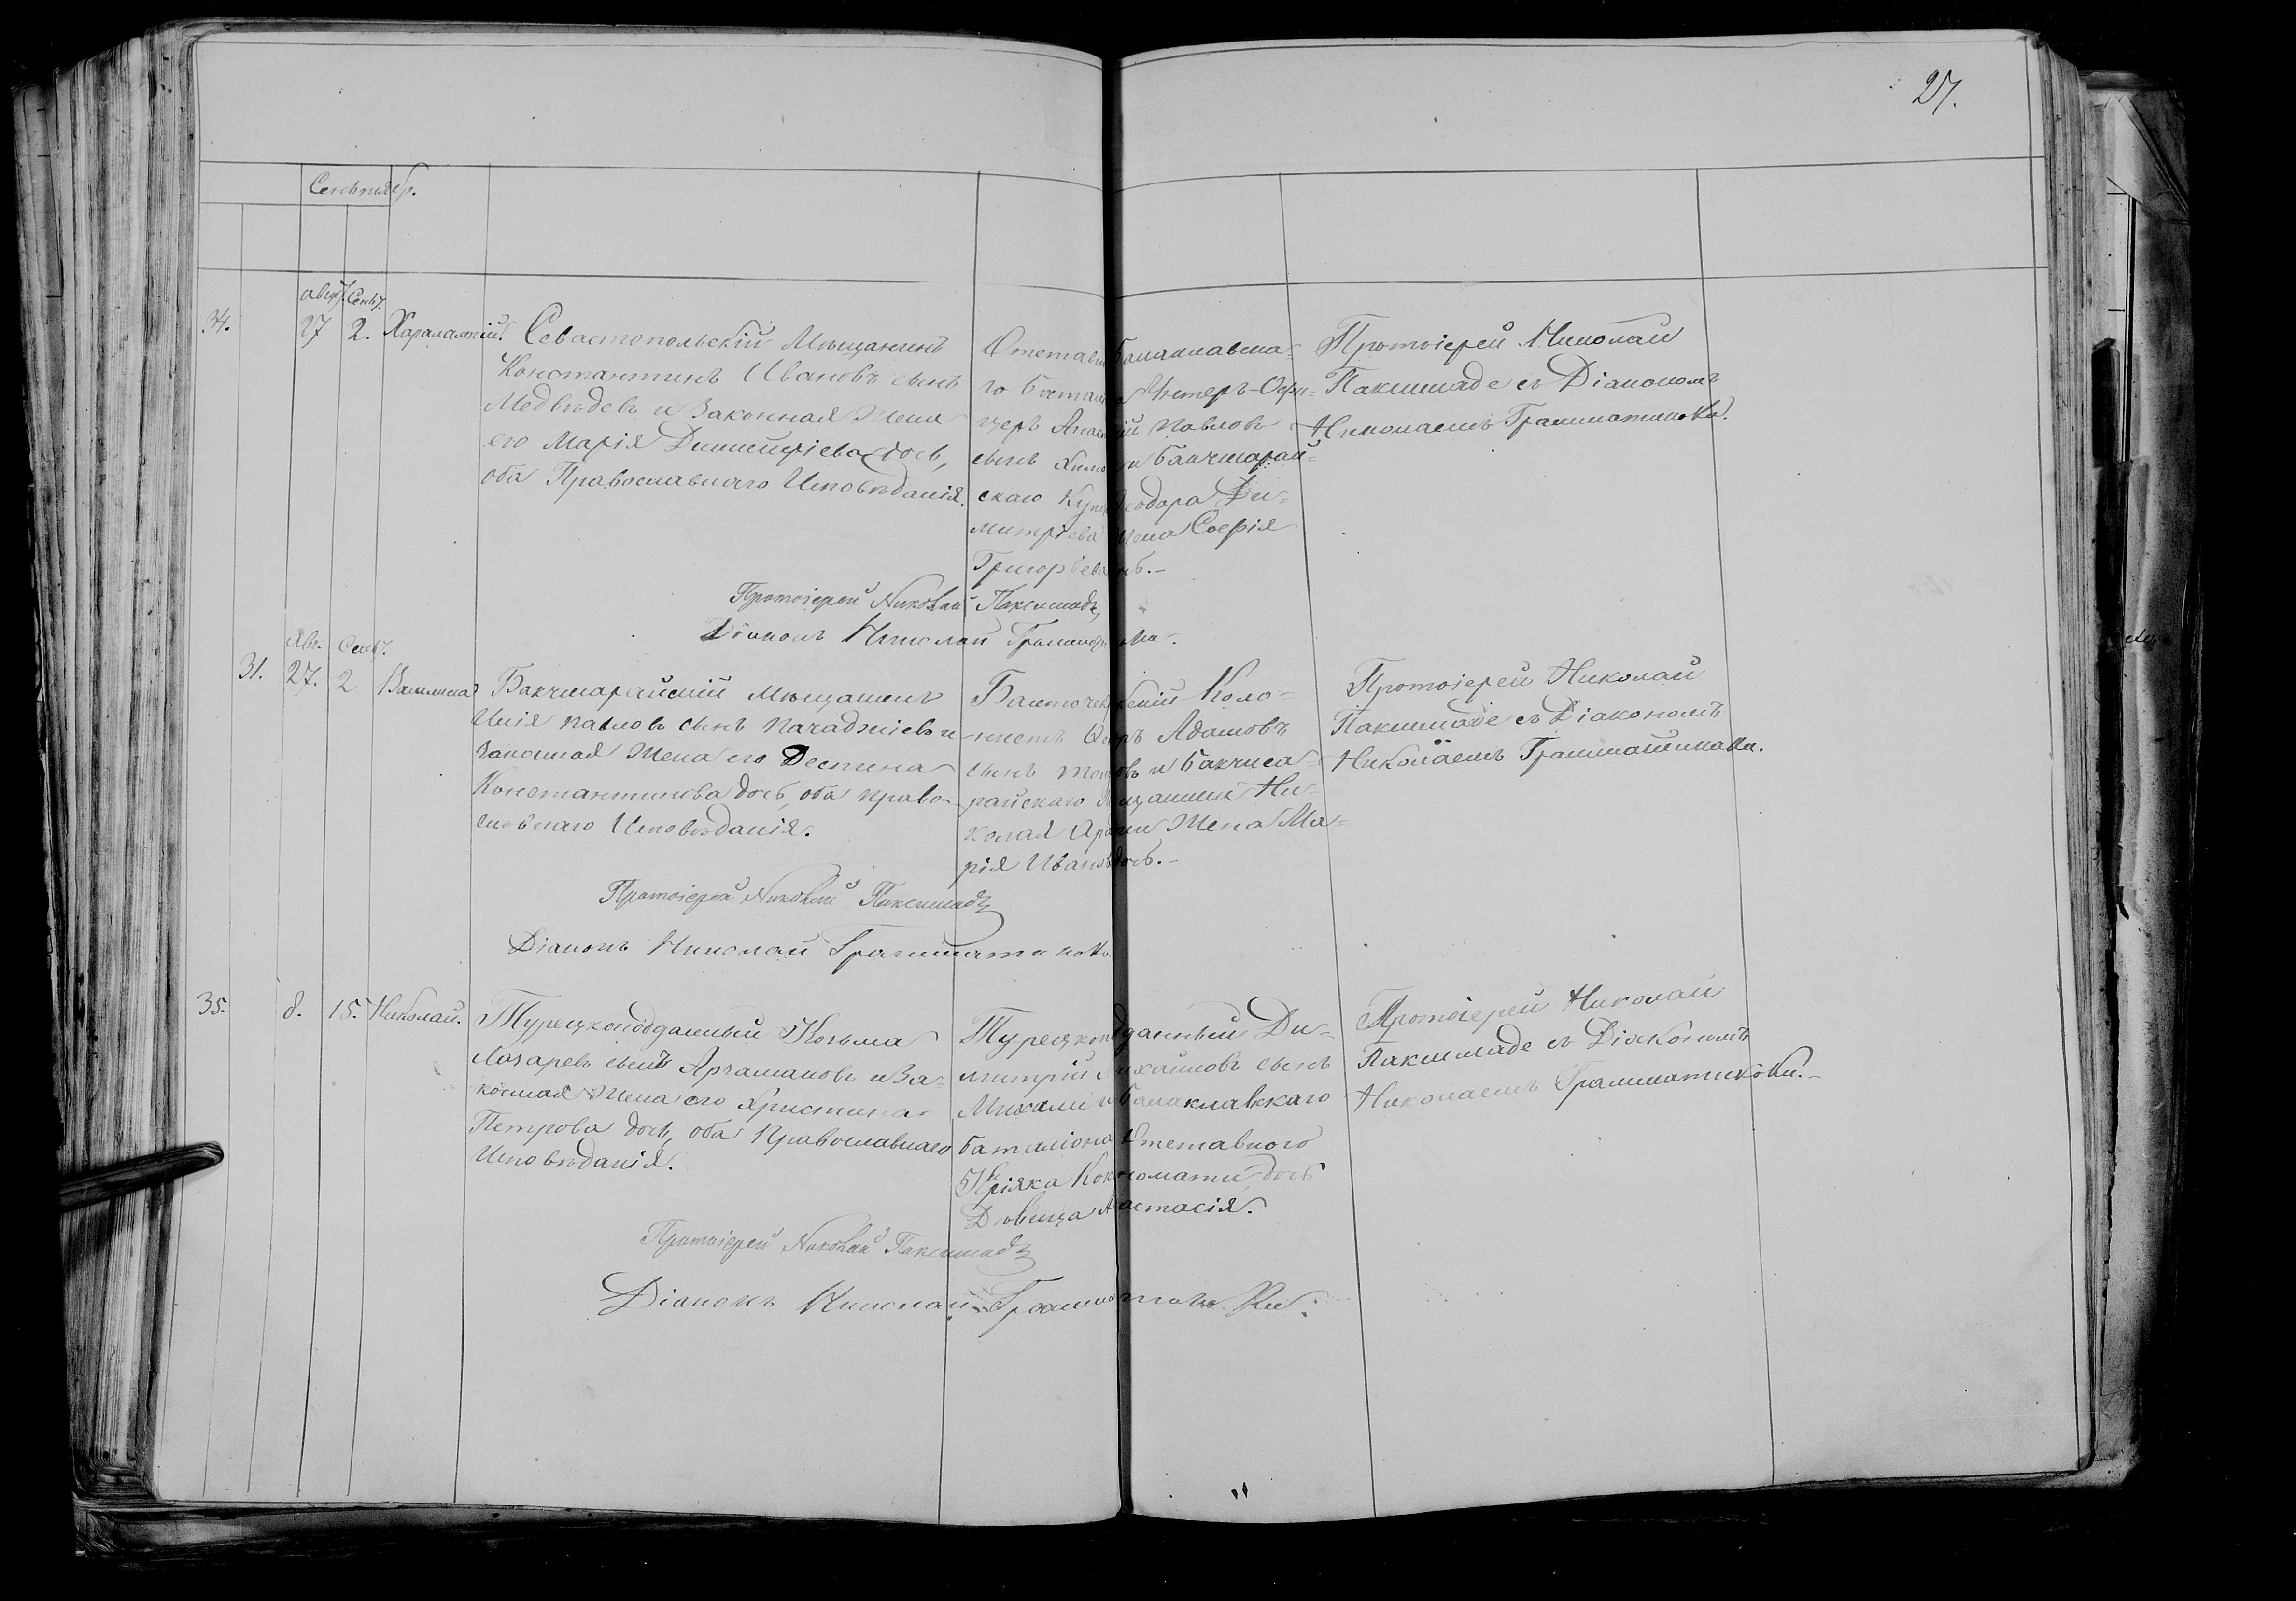 27.
Сентябр.
Авг. Сент.
34. 27 2. Харалампій.
Севастопольскій Мѣщанинъ
Константинъ Ивановъ сынъ
Медвѣдевъ и Законная Жена
его Марія Димитріева дочь,
оба Православнаго Исповѣданія.
Отставн Балаклавска=
го Батал Унтеръ-Офи=
церъ Павловъ
сынъ и Бахчисарай=
скаго Куп Ѳеодора Ди=
митріева Жена Софія
Григорьева
Протоіерей Николай
Пакшмаде съ Діакономъ
Николаемъ Грамматикаки.
Протоіерей Николай Пакшмаде
Діаконъ Николай
Авг. Сент.
31. 27. 2 Василиса
Бакчисарайскій Мѣщанинъ
Илія Павловъ сынъ Пачаджіевъ и
Законная Жена его Деспина
Константинова дочь, оба Право=
славнаго Исповѣданія.
Коло=
нистъ Адамовъ
сынъ и Бакчиса=
райскаго Мѣщанина Ни=
колая Жена Ма=
рія Иванов дочь.
Протоіерей Николай
Пакшмаде съ Діакономъ
Николаемъ Грамматикаки.
Протоіерей Николай Пакшмаде
Діаконъ Николай Грамматикаки
35. 8. 15. Николай.
Турецкоподданный Козьма
Лазаревъ сынъ Аргамаковъ и За=
конная Жена его Христина
Петрова дочь, оба Православнаго
Исповѣданія.
Турецкоподданный Ди=
митрій Михайловъ сынъ
Михали и Балаклавскаго
баталіона Отставного
Киріяка дочь
Дѣвица Анастасія.
Протоіерей Николай
Пакшмаде съ Діакономъ
Николаемъ Грамматикаки.
Протоіерей Николай Пакшмаде
Діаконъ Николай Грамматикаки.